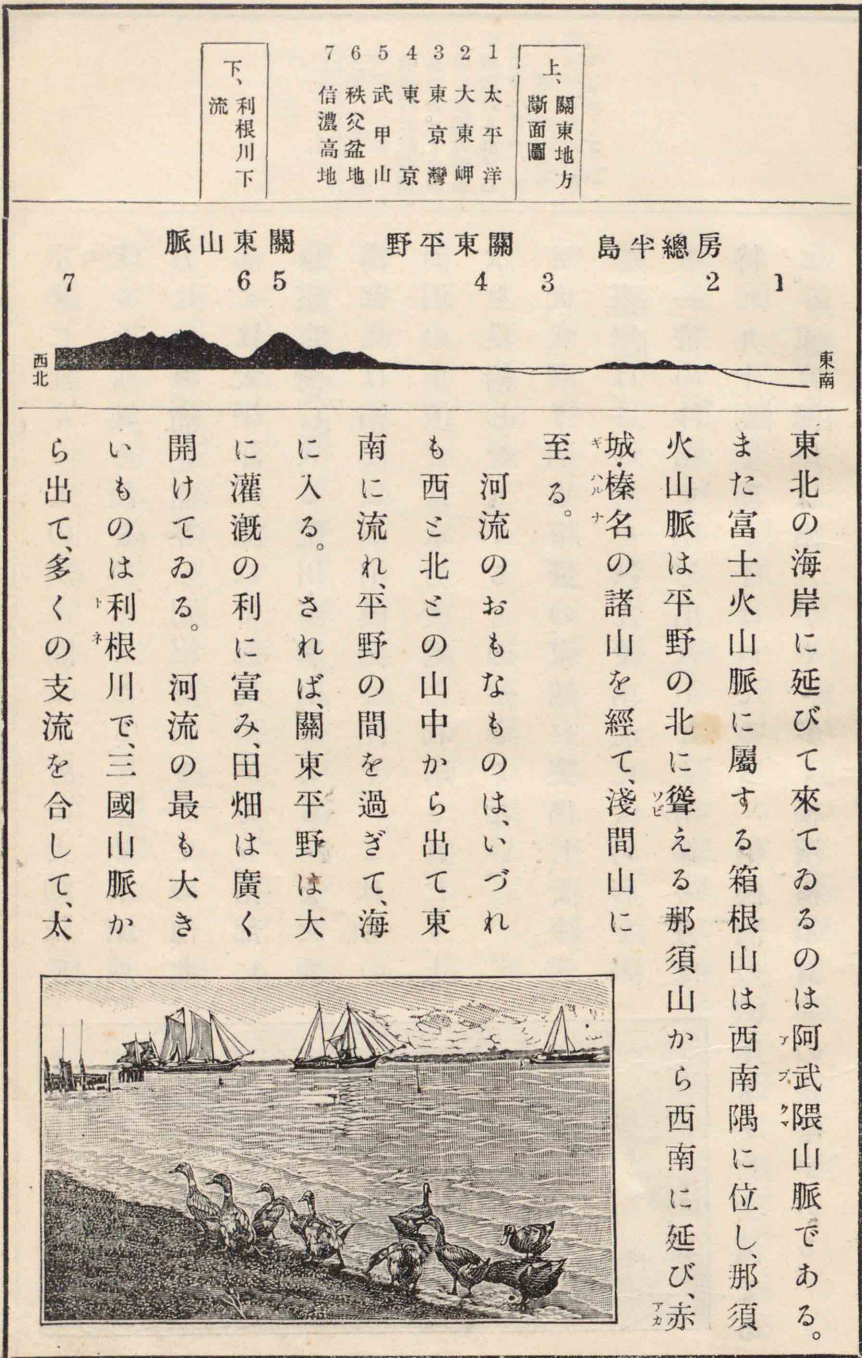 上、關東地方
斷面圖
1 太平洋
2 大東岬
3 東京灣
4 東京
5 武甲山
6 秩父盆地
7 信濃高地
下、利根川下
流
房總半島
關東平野
關東山脈
1
2
3
4
5
6
7
東南
西北
東北の海岸に延びて來てゐるのは阿武隈山脈である。
アブクマ
また富士火山脈に屬する箱根山は西南隅に位し、那須
火山脈は平野の北に聳える那須山から西南に延び、赤
ソビ
アカ
城・榛名の諸山を經て、淺間山に
ギ ハルナ
至る。
河流のおもなものは、いづれ
も西と北との山中から出て東
南に流れ、平野の間を過ぎて、海
に入る。されば、關東平野は大
に灌漑の利に富み、田畑は廣く
開けてゐる。河流の最も大き
いものは利根川で、三國山脈か
トネ
ら出て、多くの支流を合して、太